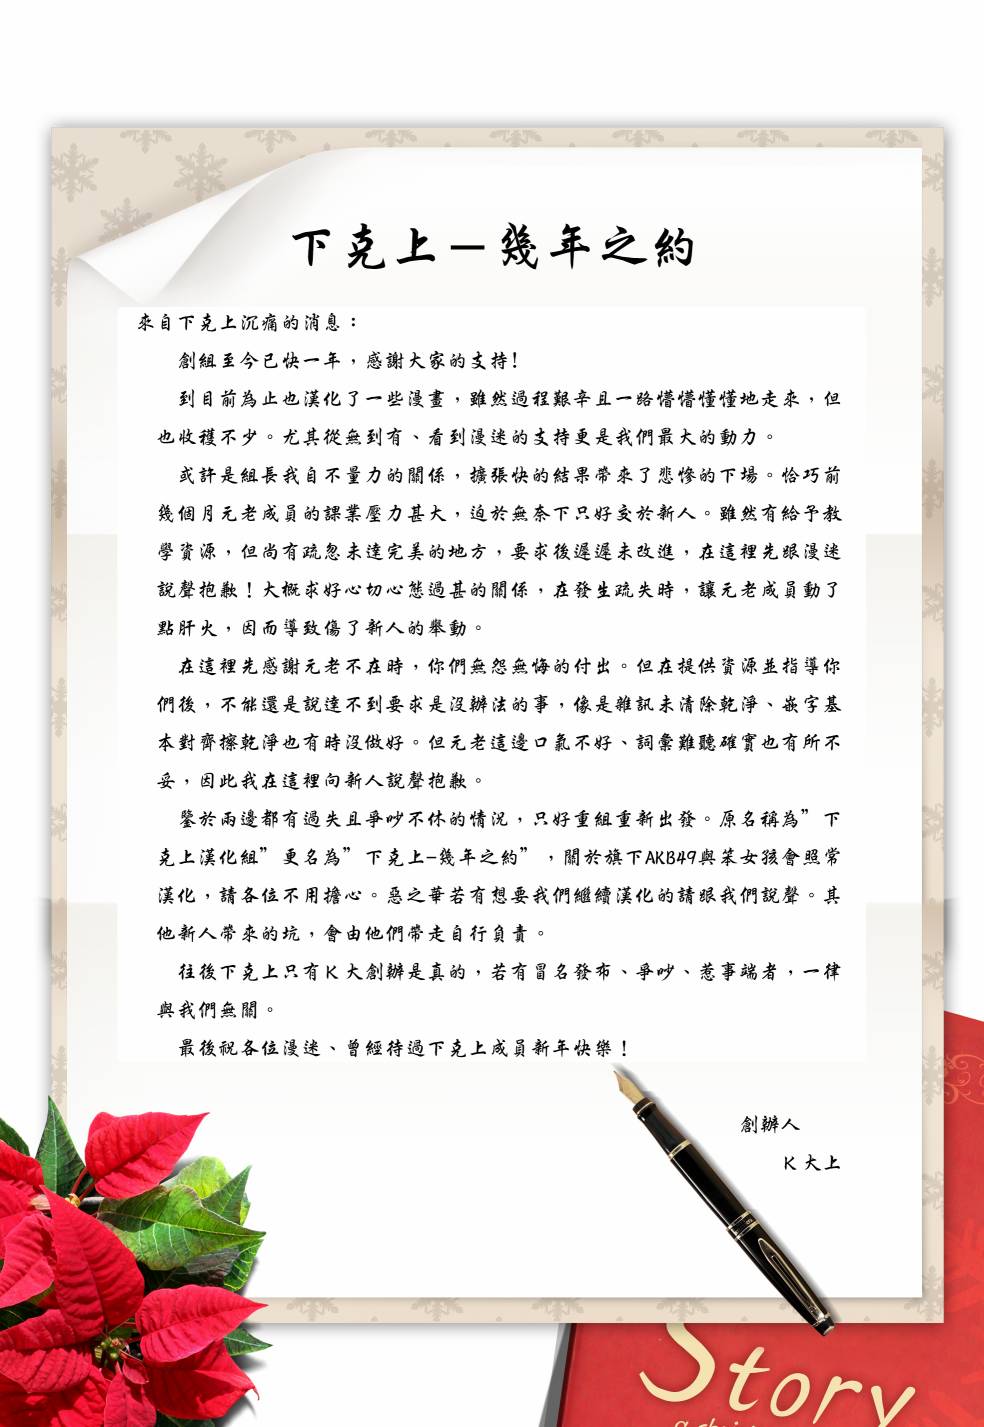 下克上－幾年之約
來自下克上沉痛的消息：
創組至今已快一年，感謝大家的支持!
到目前為止也漢化了一些漫畫，雖然過程艱辛且一路懵懵懂懂地走來，但
也收穫不少。尤其從無到有、看到漫迷的支持更是我們最大的動力。
或許是組長我自不量力的關係，擴張快的結果帶來了悲慘的下場。恰巧前
幾個月元老成員的課業壓力甚大，迫於無奈下只好交於新人。雖然有給予教
學資源，但尚有疏忽未達完美的地方，要求後遲遲未改進，在這裡先跟漫迷
說聲抱歉！大概求好心切心態過甚的關係，在發生疏失時，讓元老成員動了
點肝火，因而導致傷了新人的舉動。
在這裡先感謝元老不在時，你們無怨無悔的付出。但在提供資源並指導你
們後，不能還是說達不到要求是沒辦法的事，像是雜訊未清除乾淨、嵌字基
本對齊擦乾淨也有時沒做好。但元老這邊口氣不好、詞彙難聽確實也有所不
妥，因此我在這裡向新人說聲抱歉。
鑒於兩邊都有過失且爭吵不休的情況，只好重組重新出發。原名稱為”下
克上漢化組”更名為”下克上–幾年之約”，關於旗下AKB49與笨女孩會照常
漢化，請各位不用擔心。惡之華若有想要我們繼續漢化的請跟我們說聲。其
他新人帶來的坑，會由他們帶走自行負責。
往後下克上只有K大創辦是真的，若有冒名發布、爭吵、惹事端者，一律
與我們無關。
最後祝各位漫迷、曾經待過下克上成員新年快樂！
創辦人
K大上
Story